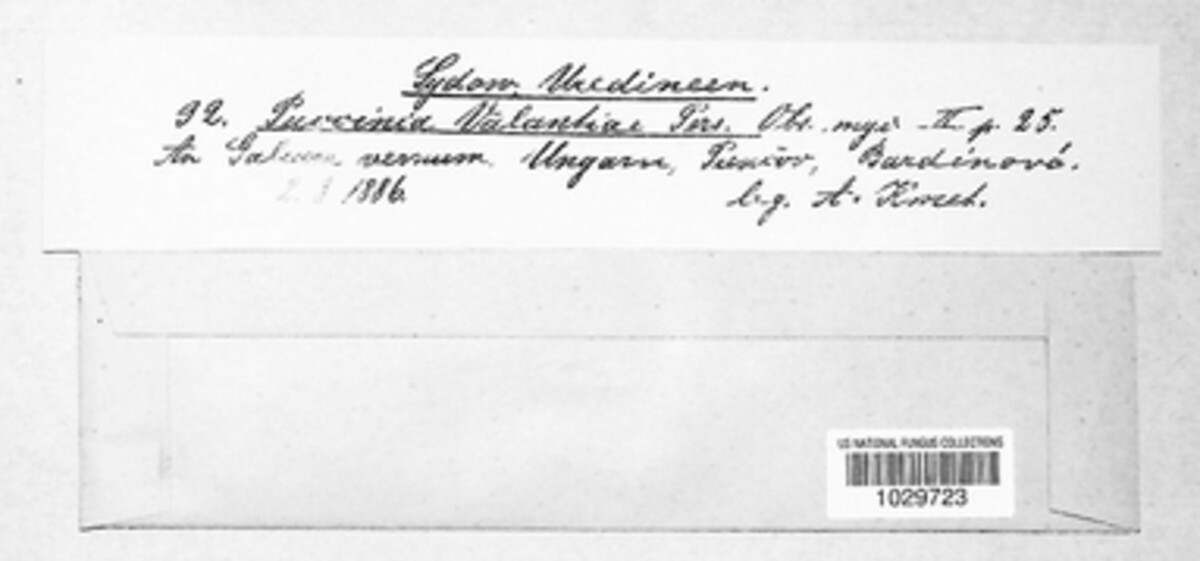 Sydow, Uredineen.
92. Puccinia Valantiae Pers. Obs. myc. II p. 25.
An Galium vernum. Ungarn, Bardínová.
1886. leg. A. Kmet.
US NATIONAL FUNGUS COLLECTIONS
1029723